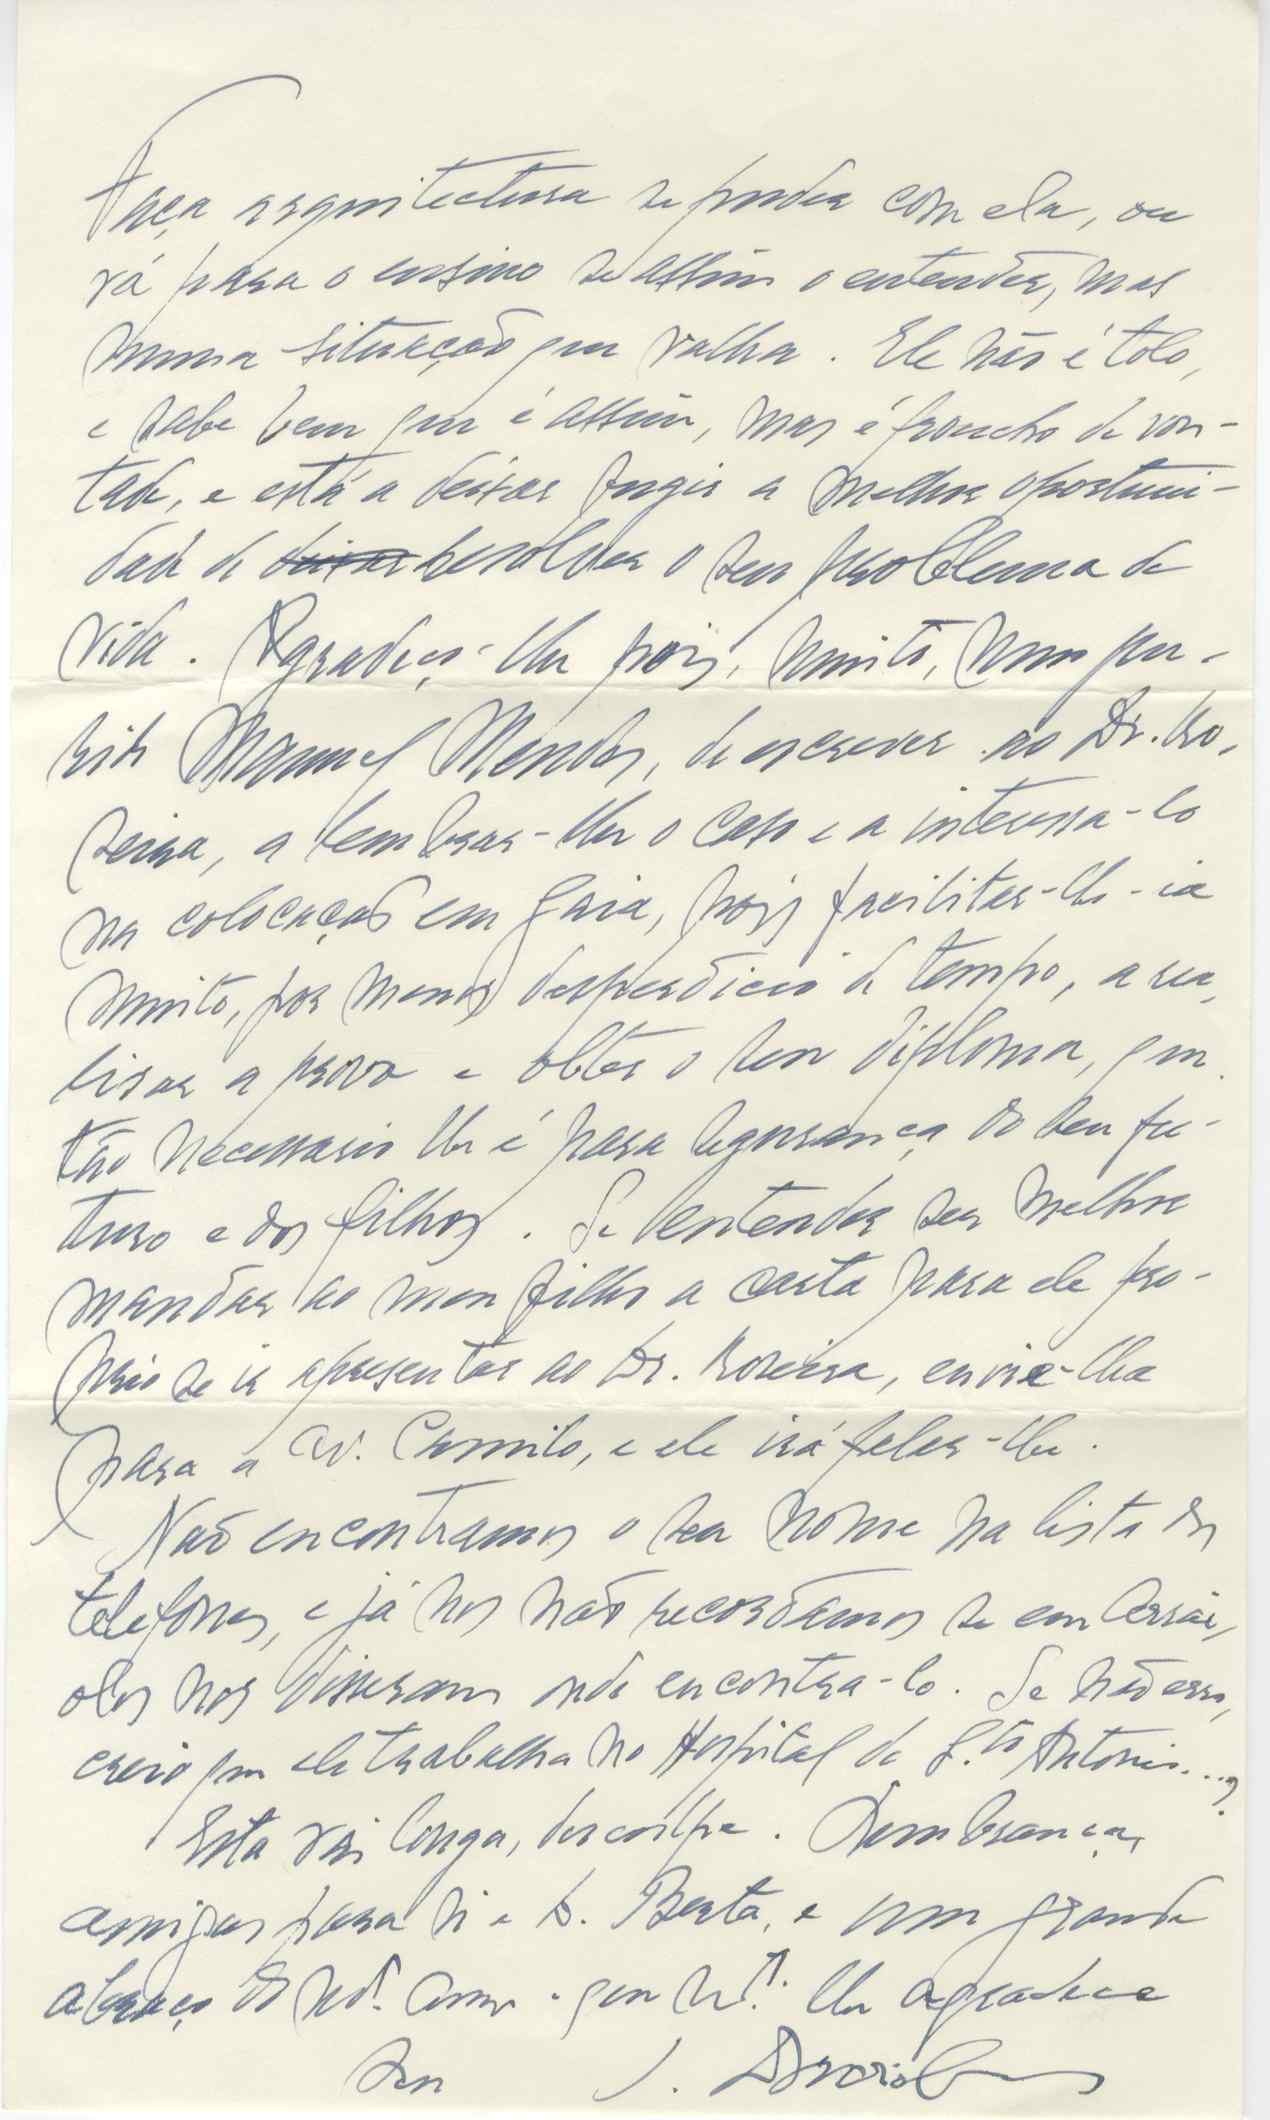 Faça arquitectura se puder com ela, ou
vá para o ensino se assim o entender, mas
numa situação que valha. Ele não é tolo,
e sabe bem que é assim, mas é frouxo de von-
tade, e está a deixar fugir a melhor oportuni-
dade de resolver o seu problema de
vida. Agradeço-lhe pois, muito, meu que-
rido Manuel Mendes, de escrever ao Dr.
a lembrar-lhe o caso e a interessa-lo
na colocação em Gaia, pois facilitar-lhe-ia
muito, por menos desperdicio de tempo, a rea-
lisar a prova e obter o seu diploma, que
tão necessario lhe é para segurança do seu fu-
turo e dos filhos. Se entender ser melhor
mandar ao meu filho a carta para ele pro-
prio se ir apresentar ao Dr. envie-lha
para a Av. Camilo, e ele irá falar-lhe.
Não encontramos o seu nome na lista dos
telefones, e já nos não recordamos se em
nos disseram onde encontra-lo. Se não erro,
creio que ele trabalha no Hospital de S.to Antonio...?
Esta vai longa, desculpe. Lembranças
amigas para si e D. Berta, e um grande
abraço do que lhe agradece
seu J.